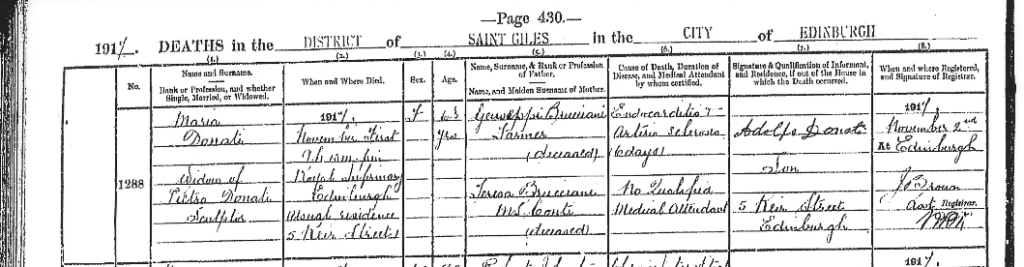 —Page 430.—
1917. DEATHS in the DISTRICT of SAINT GILES in the CITY of EDINBURGH
(1.) (2.) (3.) (4.) (5.) (6.) (7.) (8.)
No.
Name and Surname.
Rank or Profession, and whether Single, Married, or Widowed.
When and Where Died.
Sex.
Age.
Name, Surname, & Rank or Profession of Father.
Name, and Maiden Surname of Mother.
Cause of Death, Duration of Disease, and Medical Attendant by whom certified.
Signature & Qualification of Informant, and Residence, if out of the House in which the Death occurred.
When and where Registered, and Signature of Registrar.
1288
Maria
Donati
Widow of
Pietro Donati
Sculptor
1917,
November First
Royal Infirmary
Edinburgh
Usual residence
5 Keir Street
F
yrs
Bruciani
Farmer
(deceased)
Teresa Bruciani
M.S. Conti
(deceased)
Endocarditis &
Arterio Sclerosis
6 days
No Qualified
Medical Attendant
Adolfo Donati
Son
5 Keir Street
Edinburgh
1917,
November 2nd
At Edinburgh
J Brown
Asst Registrar.
1917,